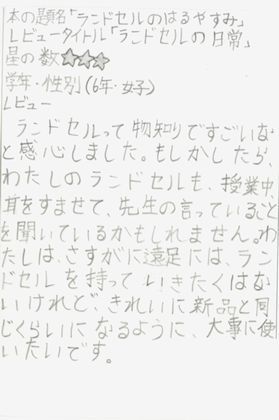 本の題名「ランドセルのはるやすみ」
レビュータイトル「ランドセルの日常」
星の数★★★
学年・性別(6年・女子)
レビュー
ランドセルって物知りですごいな
と感心しました。もしかしたら、
わたしのランドセルも、授業中
耳をすませて、先生の言っていること
を聞いているかもしれません。わ
たしは、さすがに遠足には、ラン
ドセルを持っていきたくはな
いけれど、きれいに新品と同
じくらいになるように、大事に使
いたいです。